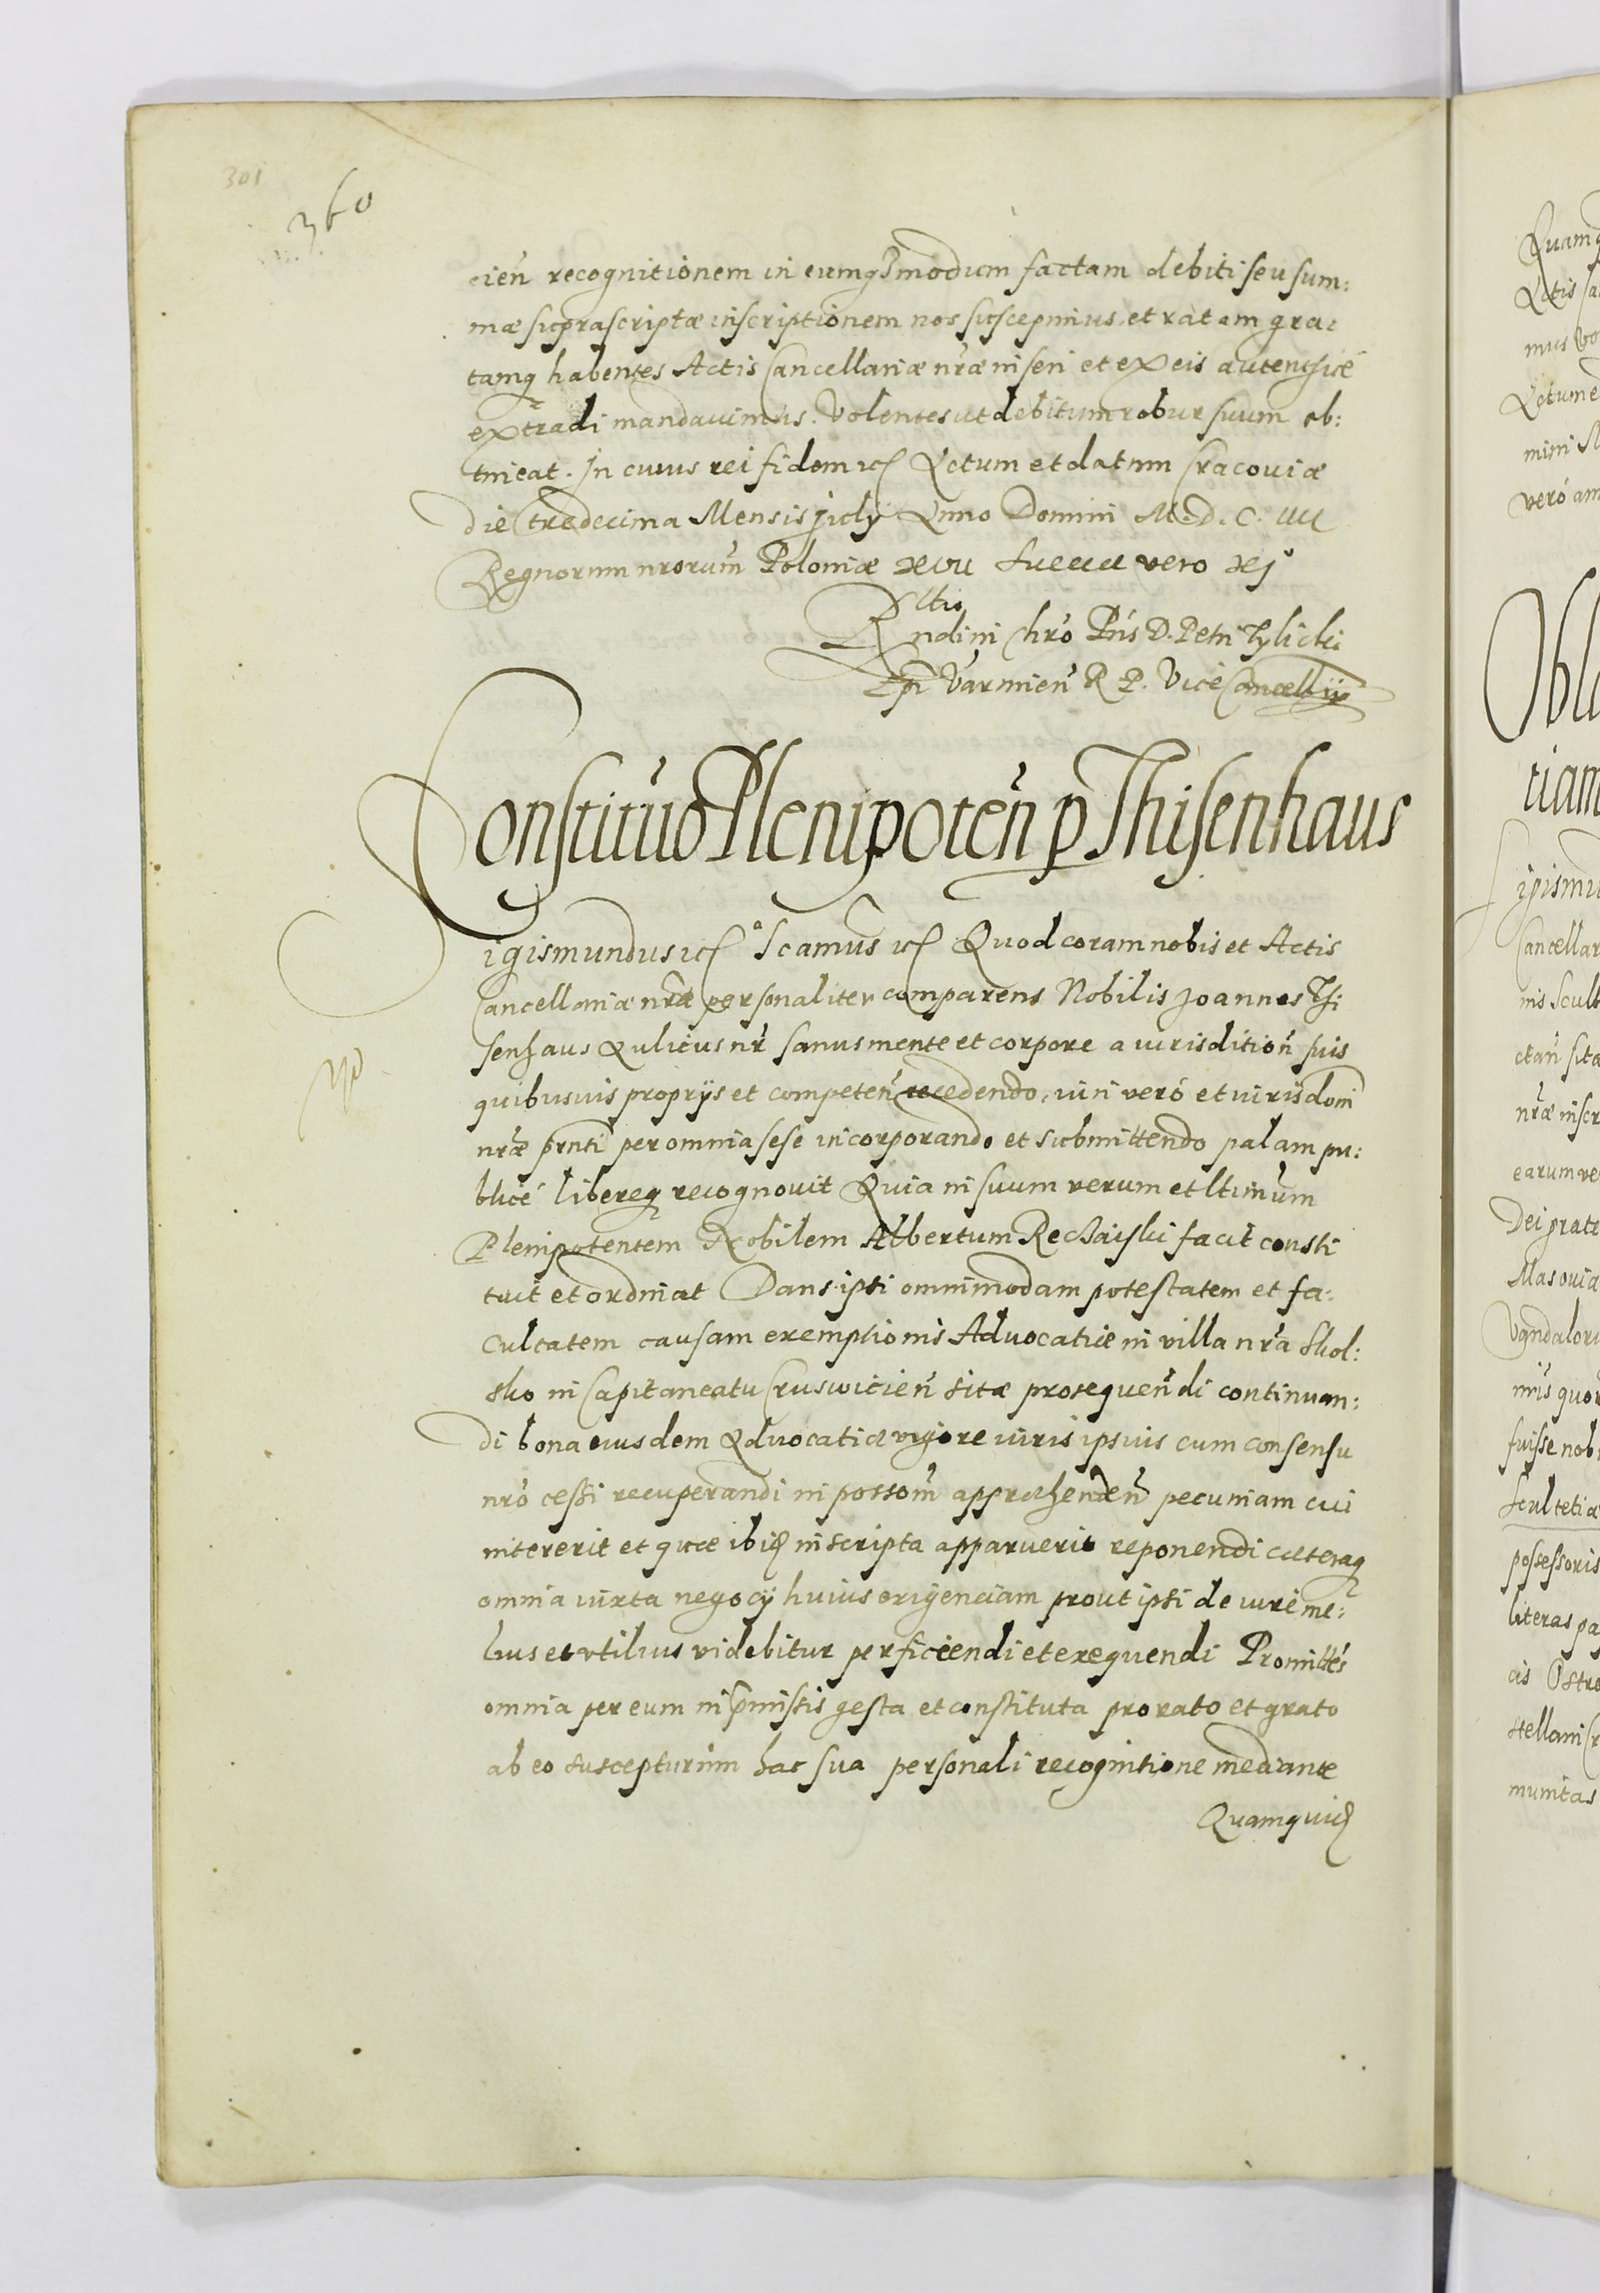 301
360
cień recognitionem in eumq3modum factam debiti seu sum:
mæ supra scriptæ inscriptionem nos suscepimus, et ratam gra:
tamq habentes Actis Cancellariæ nræ inseri et ex eis autenthicé
extradi mandauimus. Volentes ut debitum robur suum ob:
tineat. In cuius rei fidem etc Actum et datum Cracouiæ
die tredecima Mensis July Anno Domini M. D. C. IIII
Regnorum nrorum Poloniæ xvii Sueciæ vero xj°
Rltio
Rndini Chro Pris D. Petri Tylicki
Epi Varmień R P. Vice Cancellarij
Constitutio Plenipoteń p Thisenhaus
Sigismundus etc Scamus etc Quod coram nobis et Actis
Cancellariæ nræ personaliter comparens Nobilis Joannes Thi
senhaus Aulicus nr sanus mente et corpore a iurisdition suis
quibusuis proprijs et competeń recedendo, iuri veró et iurisdoni
nræ prnti per omnia sese incorporando et submittendo palam pu:
blicé libereq recognouit Quia in suum verum et ltimum
Plenipotentem Nobilem Albertum Rechaiski facit consti
tuit et ordinat Dans ipsi omnimodam potestatem et fa:
cultatem causam exemptionis Aduocatiæ in villa nra Skol:
sko in Capitaneatu Cruswicień sitæ prosequendi continuan:
di bona eiusdem Aduocatiæ vigore iuris ipsius cum consensu
nro cessi recuperandi in possom apprehendeń pecuniam cui
intererit et quæ ibid inscripta apparuerit reponendi cæteraq
omnia iuxta negocij huius exigenciam prout ipsi de iure me:
lius et vtilius videbitur perficiendi et exequendi Promittés
omnia per eum in pmissis gesta et constituta pro rato et grato
ab eo suscepturum hac sua personali recognitione mediante
Quamquid